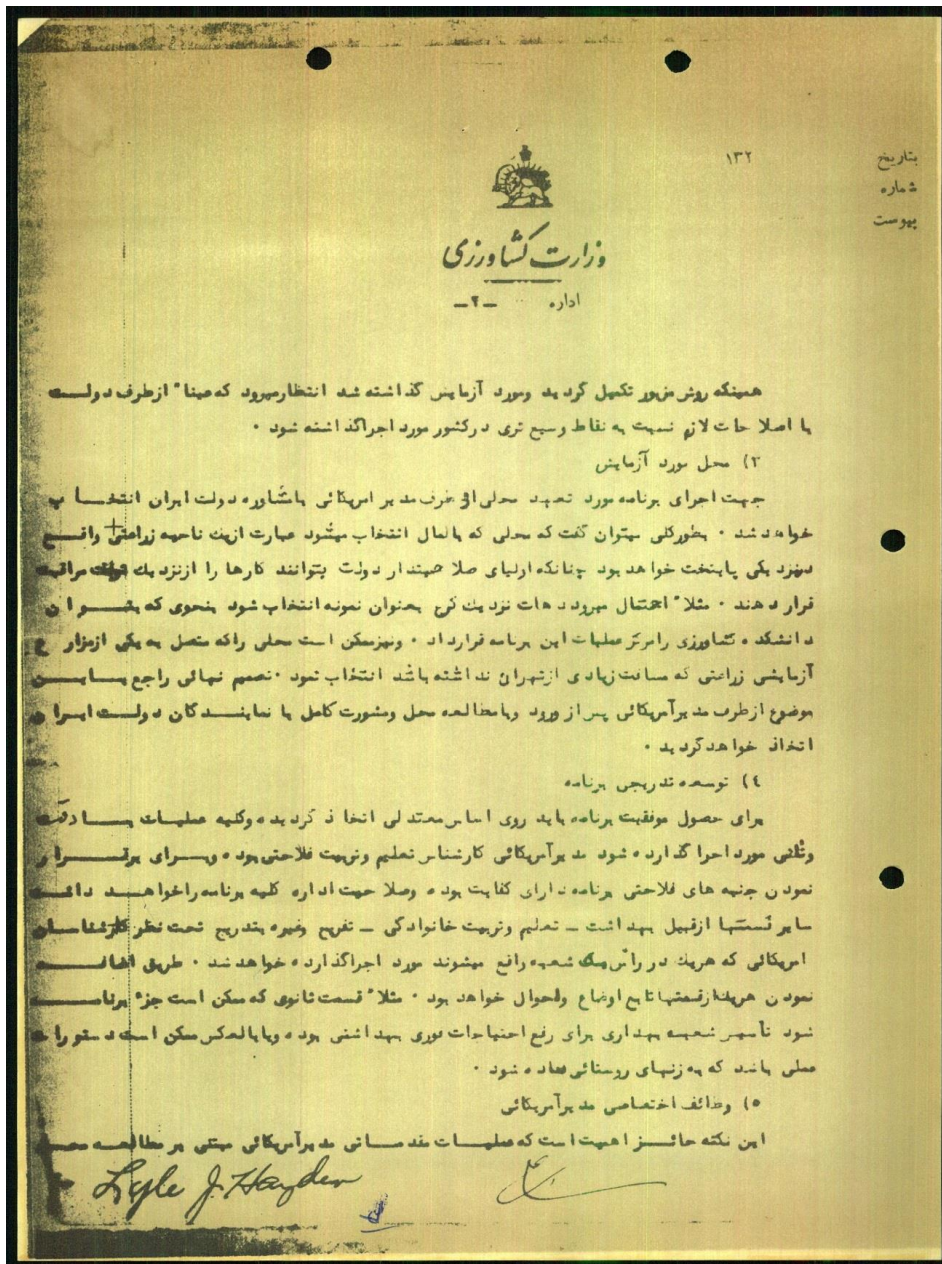 بتاریخ ۱۳۲
شماره
پیوست
وزارت کشاورزی
اداره ـ۲ـ
همینکه روش مزبور تکمیل گردید ومورد آزمایش گذاشته شد انتظارمیرود که عینا" ازطرف دولت
با اصلاحات لازم نسبت به نقاط وسیع تری درکشور مورد اجراگذاشته شود ۰
۳) محل مورد آزمایش
جهت اجرای برنامه مورد تعهد محلی از طرف مدیر امریکائی بامشاوره دولت ایران انتخاب
خواهد شد ۰ بطورکلی میتوان گفت که محلی که بالمال انتخاب میشود عبارت ازیک ناحیه زراعتی واقع
درنزدیکی پایتخت خواهد بود چنانکه اولیای صلاحیتدار دولت بتوانند کارها را ازنزدیک مراقبت
قرار دهند ۰ مثلا" احتمال میرود دهات نزدیک کرج بعنوان نمونه انتخاب شود بنحوی که بتوان
دانشکده کشاورزی رامرکز عملیات این برنامه قرارداد ۰ ونیزممکن است محلی راکه متصل به یکی ازمزارع
آزمایشی زراعتی که مسافت زیادی ازتهران نداشته باشد انتخاب نمود ۰ تصمیم نهائی راجع باین
موضوع ازطرف مدیرآمریکائی پس از ورود وبامطالعه محل ومشورت کامل با نمایندگان دولت ایران
اتخاذ خواهدگردید ۰
۴) توسعه تدریجی برنامه
برای حصول موفقیت برنامه باید روی اساس معتدلی اتخاذ گردیده وکلیه عملیات بادقت
وتأنی مورد اجرا گذارده شود مدیرآمریکائی کارشناس تعلیم وتربیت فلاحتی بوده وبرای برقرار
نمودن جنبه های فلاحتی برنامه دارای کفایت بوده وصلاحیت اداره کلیه برنامه راخواهد داشت
سایر قسمتها ازقبیل بهداشت ـ تعلیم وتربیت خانوادگی ـ تفریح وغیره بتدریج تحت نظر کارشناسان
امریکائی که هریک در رأس یک شعبه واقع میشوند مورد اجراگذارده خواهد شد ۰ طریق اضافه
نمودن هریک ازقسمتها تابع اوضاع واحوال خواهد بود ۰ مثلا" قسمت ثانوی که ممکن است جزء برنامه
شود تأسیس شعبه بهداری برای رفع احتیاجات فوری بهداشتی بوده ویابالعکس ممکن است دستورات
عملی باشد که به زنهای روستائی داده شود ۰
۵) وظائف اختصاصی مدیرآمریکائی
این نکته حائز اهمیت است که عملیات مقدماتی مدیرآمریکائی مبتنی بر مطالعه
Lyle J. Hayden